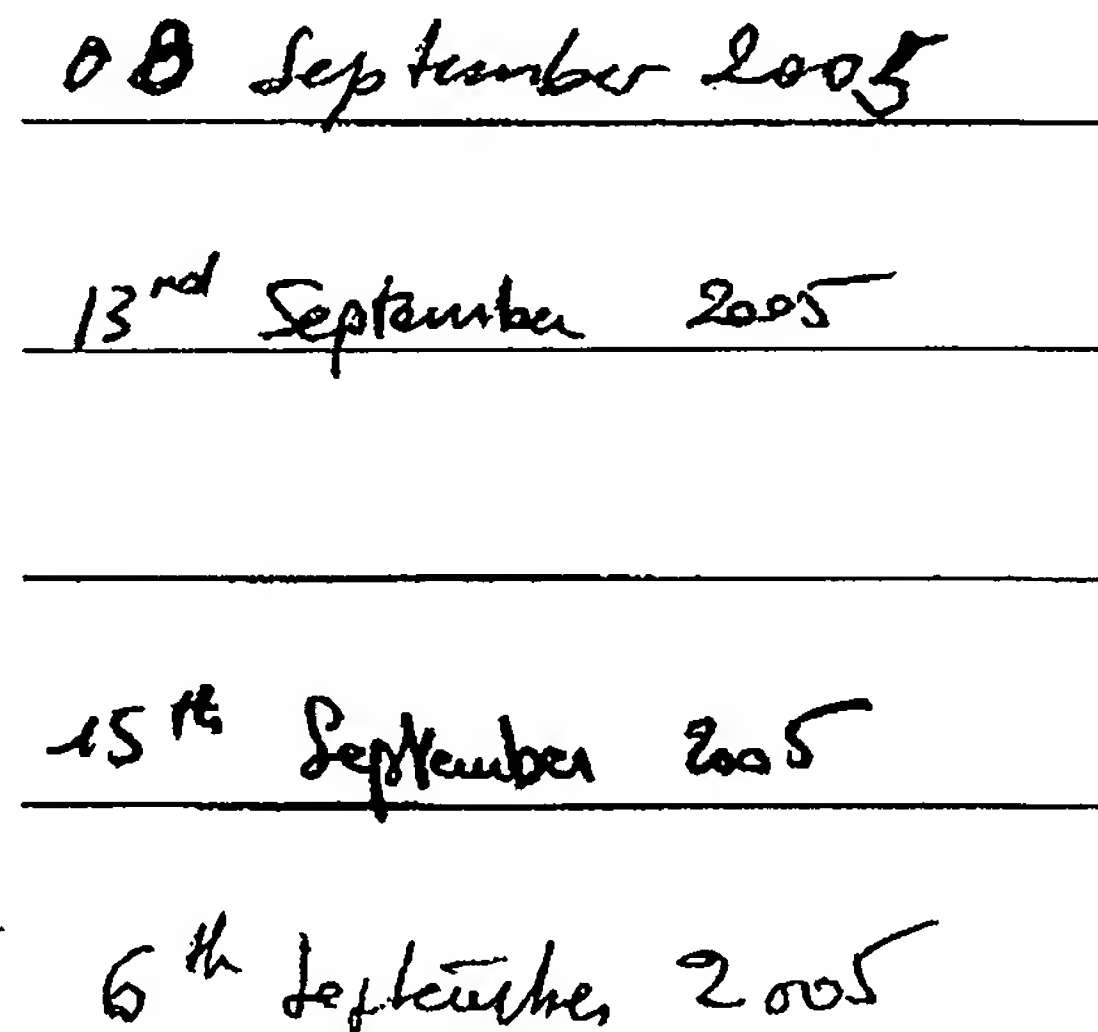 08 September 2005
13rd September 2005
15th September 2005
6th September 2005